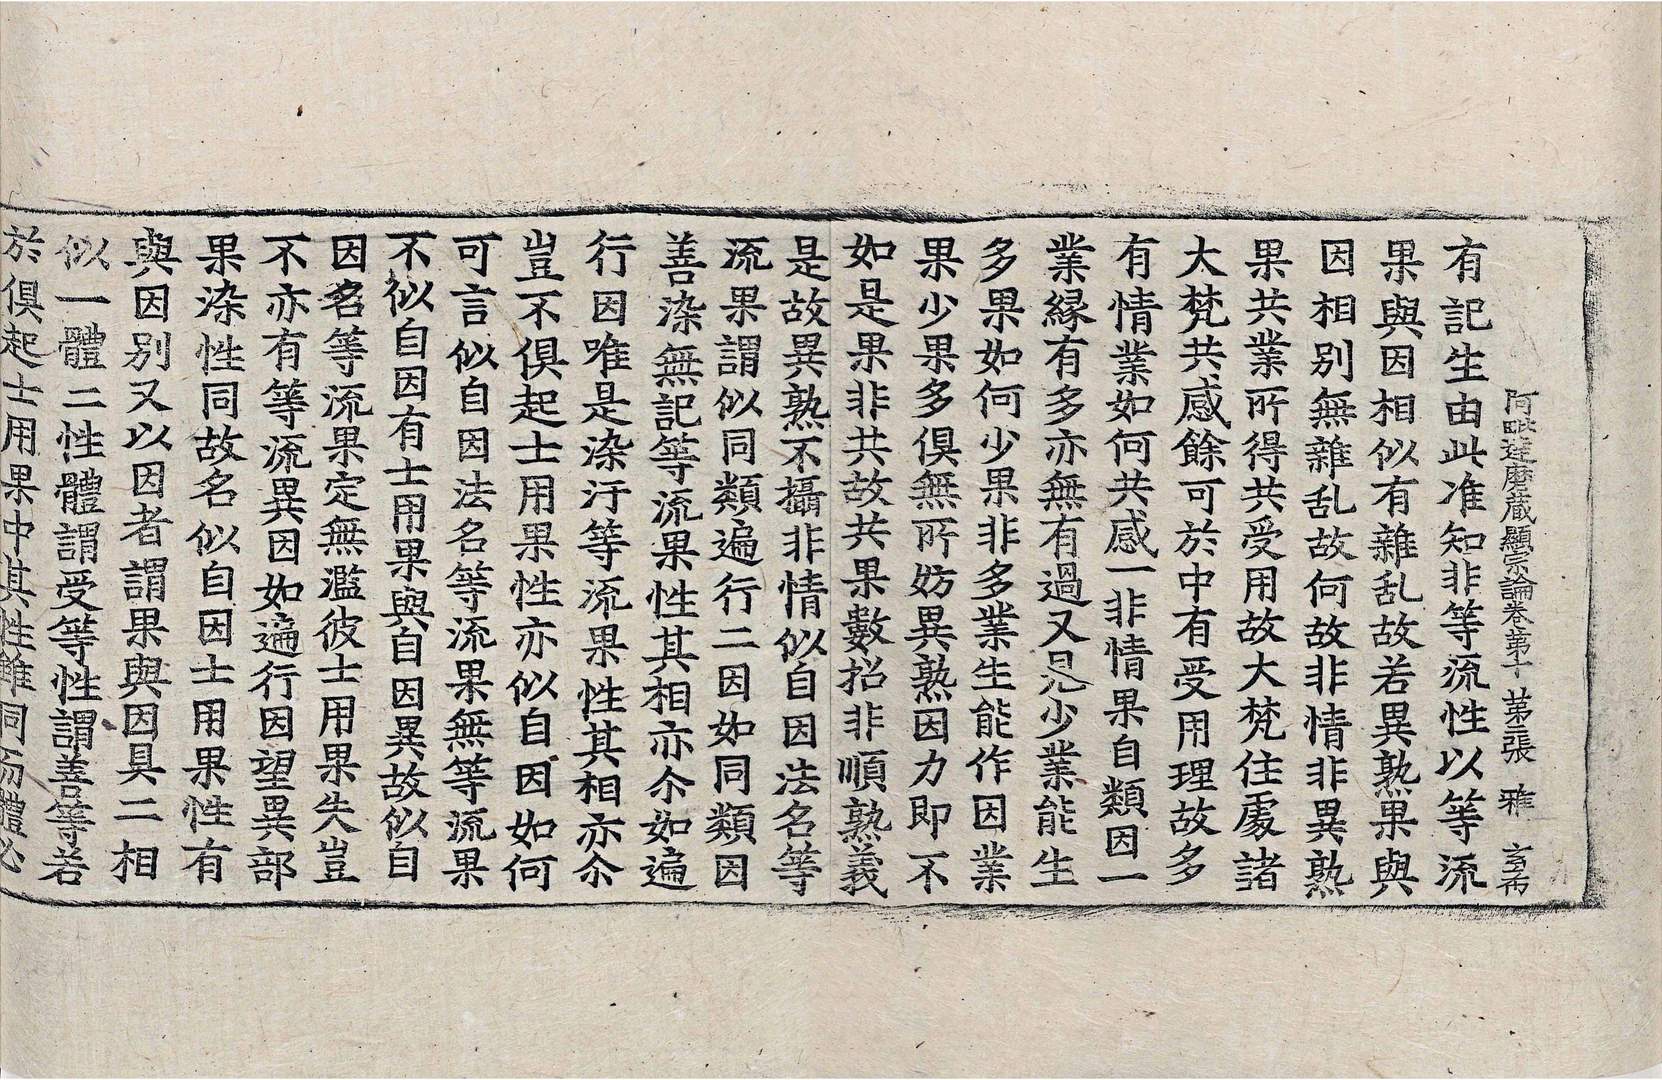 阿毗達磨藏顯宗論卷第十 第三張 雅
有記生由此准知非等流性以等流
果與因相似有雜乱故若異熟果與
因相別無雜乱故何故非情非異熟
果共業所得共受用故大梵住處諸
大梵共感餘可於中有受用理故多
有情業如何共感一非情果自類因一
業緣有多亦無有過又見少業能生
多果如何少果非多業生能作因業
果少果多俱無所妨異熟因力即不
如是果非共故共果數招非順熟義
是故異熟不攝非情似自因法名等
流果謂似同類遍行二因如同類因
善染無記等流果性其相亦尒如遍
行因唯是染汙等流果性其相亦尒
豈不俱起士用果性亦似自因如何
可言似自因法名等流果無等流果
不似自因有士用果與自因異故似自
因名等流果定無濫彼士用果失豈
不亦有等流異因如遍行因望異部
果染性同故名似自因士用果性有
與因別又以因者謂果與因具二相
似一體二性體謂受等性謂善等若
於俱起士用果中其性雖同而體必